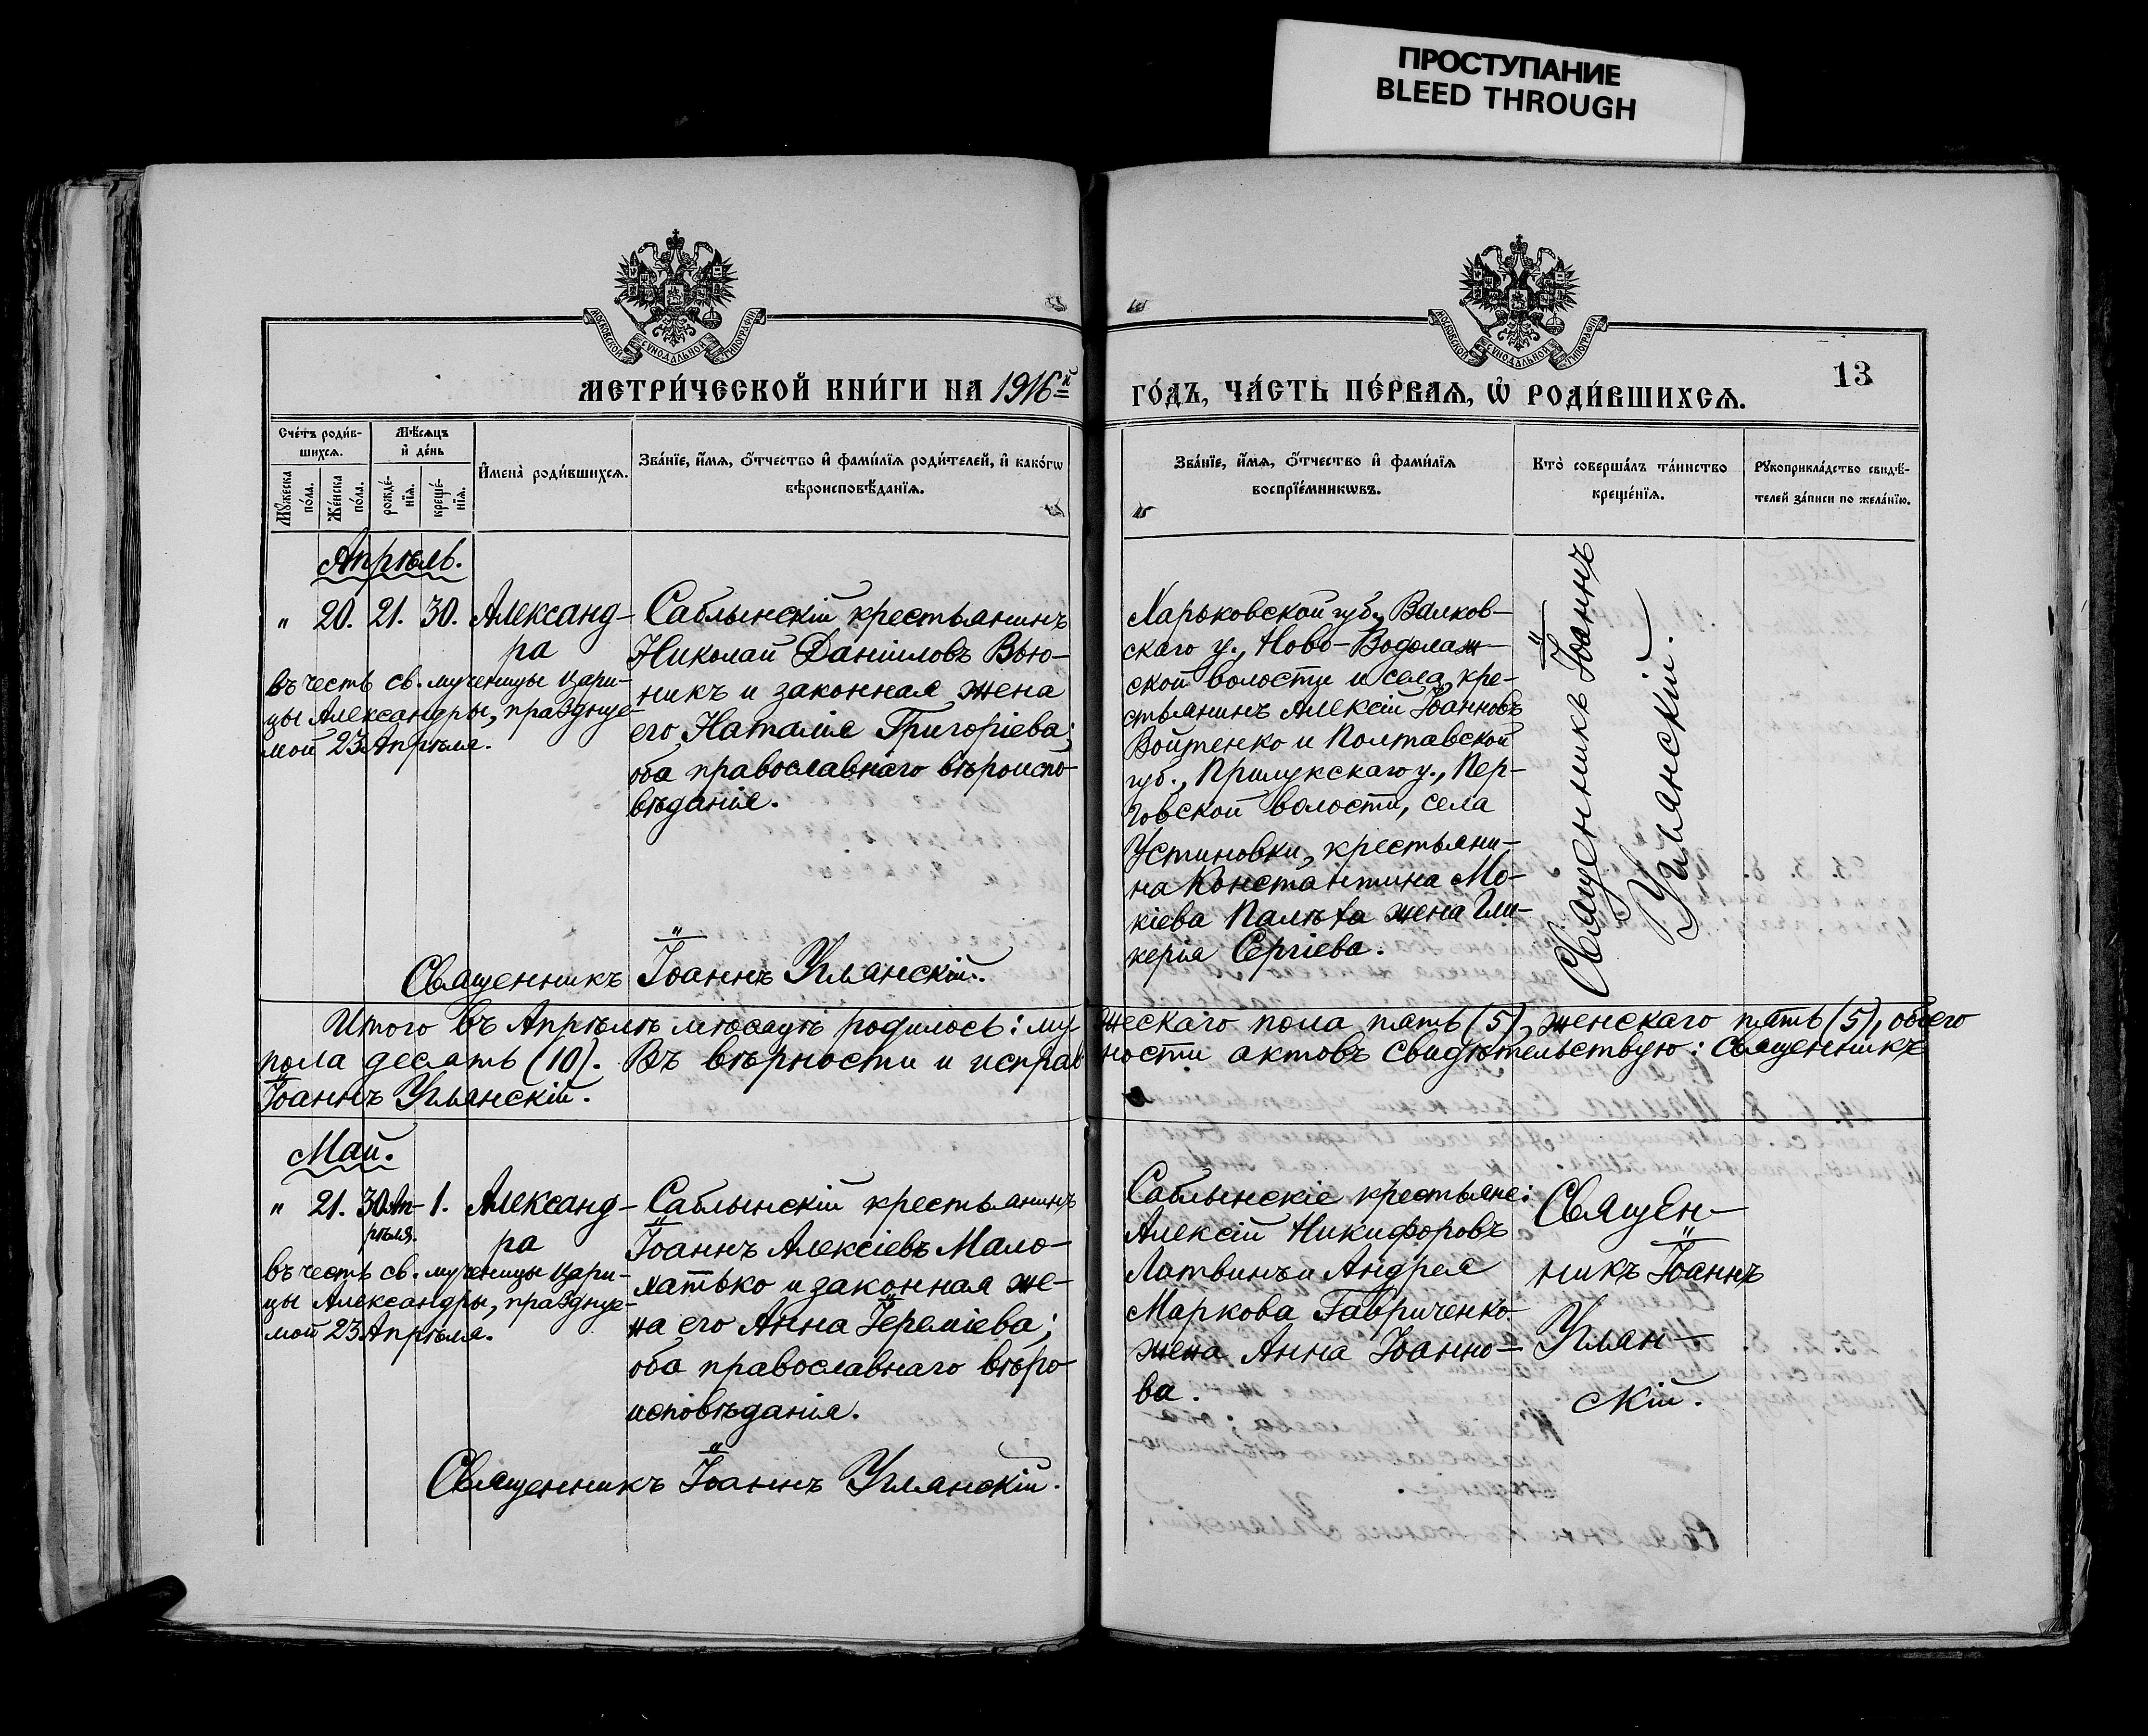 ПРОСТУПАНИЕ
BLEED THROUGH
МОСКОВСКОЙ СУНОДАЛЬНОЙ ТИПОГРАФІИ
МОСКОВСКОЙ СУНОДАЛЬНОЙ ТИПОГРАФІИ
МЕТРИ́ЧЕСКОЙ КНИ́ГИ НА 1916й
ГО́ДЪ, ЧА́СТЬ ПЕ́РВАѦ, Ѡ҆ РОДИ́ВШИХСѦ.
13
Сче́тъ роди́в-
шихсѧ.
Мꙋ́жеска по́ла.
Же́нска по́ла.
Мѣ́сѧцъ
и҆ де́нь
рожде́-
нїѧ.
креще́-
нїѧ.
И҆мена̀ роди́вшихсѧ.
Зва́нїе, и҆́мѧ, ѻ҆́тчество и҆ фами́лїѧ роди́телей, и҆ како́гѡ
вѣроисповѣ́данїѧ.
Зва́нїе, и҆́мѧ, ѻ҆́тчество и҆ фами́лїѧ
воспрїе́мникѡвъ.
Кто̀ соверша́лъ та́инство
креще́нїѧ.
Рꙋкоприкла́дство свидѣ́-
телей за́писи по жела́нїю.
Апрѣль.
" 20. 21. 30. Александ-
ра
въ честь св. мученицы цари-
цы Александры, праздnуе-
мой 23 Апрѣля.
Саблынскій крестьянинъ
Николай Даніиловъ Вью-
никъ и законная жена
его Наталія Григоріева;
оба православнаго вѣроиспо-
вѣданія.
Священникъ Іоаннъ Углянскій.
Харьковской губ., Валков-
скаго у., Ново-Водолаж-
ской волости и села, кре-
стьянинъ Алексій Іоанновъ
Войтенко и Полтавской
губ., Прилукскаго у., Пер-
говской волости, села
Устиновки, крестьяни-
на Константина Мо-
кіева Палѣха жена Гли-
керія Сергіева.
Священникъ Іоаннъ
Углянскій.
Итого въ Апрѣлѣ мѣсяцѣ родилось: му-жескаго пола пять (5), женскаго пять (5), обоего
пола десять (10). Въ вѣрности и исправ ности актовъ свидѣтельствую: священникъ
Іоаннъ Углянскій.
Май.
" 21. 30 Ап- 1. Александ-
рѣля. ра
въ честь св. мученицы цари-
цы Александры, празднуе-
мой 23 Апрѣля.
Саблынскій крестьянинъ
Іоаннъ Алексіевъ Мало-
хатько и законная же-
на его Анна Іереміева;
оба православнаго вѣро-
исповѣданія.
Священникъ Іоаннъ Углянскій.
Саблынскіе крестьяне:
Алексій Никифоровъ
Литвинъ и Андрея
Маркова Гавриченко
жена Анна Іоанно-
ва.
Священ-
никъ Іоаннъ
Углян-
скій.